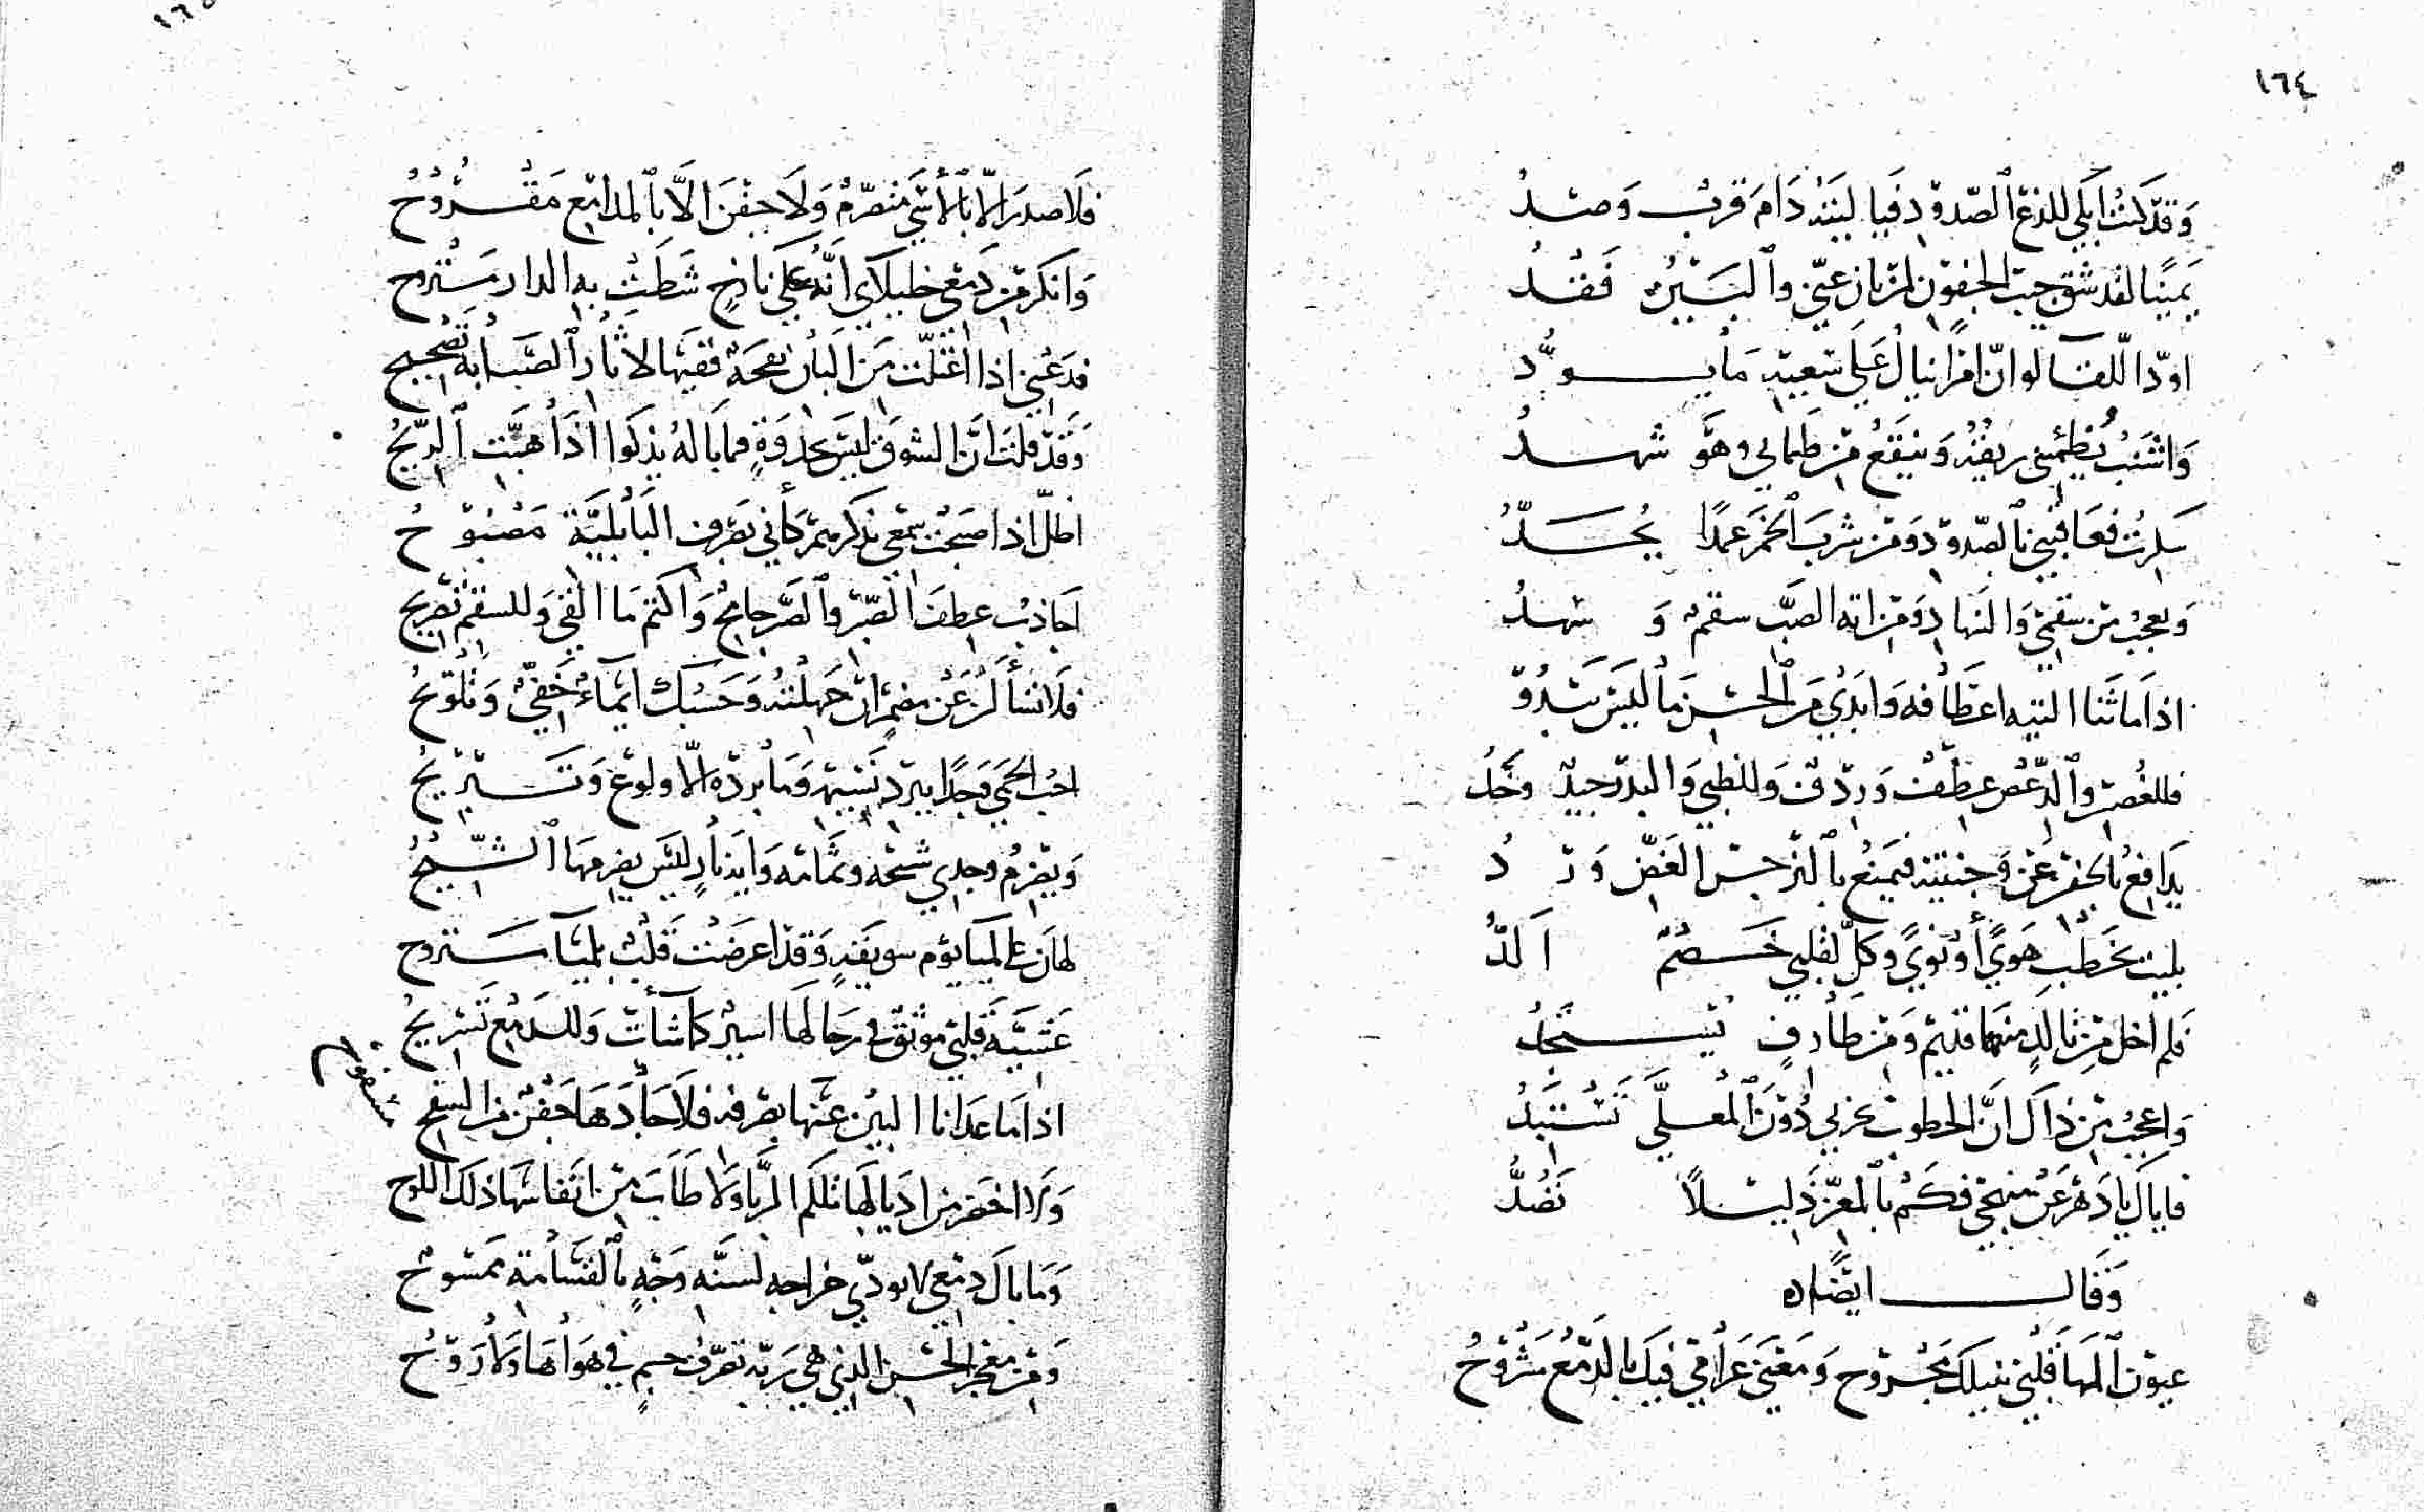 ١٦٤
وَقَدْ كنتُ ابكي للذع الصّدود فيا ليتهُ دَامَ قربٌ وَصدُّ
يَمينًا لقد شق جيب الجفون لمن بان عني والبينُ فَقْدُ
اودّ اللقا لو انّ امرًا ينال عَلى سَعيهِ مَا يودُّ
وَاشنبُ يُظمئني ريقُهُ وَينقعُ من ظمايَ وهوَ شهدُ
سكرتُ فعَاقبني بالصّدود وَمن شربَ الخمرَ عمدًا يُحَدُّ
وَيعجبُ من سقمي وَالنهاد وَمن اته الصّبّ سقمٌ وَ سهدُ
اذا مَا ثَنا التيه اعطافه وَابدي مَن الحُسْن ما ليسَ يَبدُوْ
فللغُصن والدّعْص عِطفٌ وَردْفٌ وَللظبي وَالبدر جيدٌ وخَدُّ
يدَافعُ بالجفن عن وَجنتيه فيمنعُ بالنرجس الغَضّ وَردُ
بليت بخَطْبِ هَويً أوْ نويً وكلٌّ لقلبي خَصْمٌ اَلَدُّ
فلم اخل من تالدٍ منهمَا قديم وَمن طَارفٍ يَسْتَجدُّ
وَاعجبُ مِن ذاك انّ الخطوب عزبي دُوْنَ المُعلَّي تَسْتَبِدُّ
فاياك يا دَهْر عَنْ منهجي فكَمْ بالمعزّ ذَليلًا نَصُدُّ
وَقال ايضًا
عيوْن المهَا قلْبي بنبلك مَجْروح وَمَغْني غَرامي فيك بالدَّمْع مَشْرُوْحُ
١٦٥
فلَا صدرَ الّا بالأسَي متضرّمٌ وَلَا جفنَ الّا بالمدَامع مَقْرُوْحُ
وَانكرَ من دَمْعي خليلاي انَّهُ عَلَي نازحٍ شَطّتْ به الدار مسْفوح
فدَعْني اذا اعتلّت من البَان نفحَةٌ ففيهَا لاثار الصَّبابة تَصْحيح
وَقَدْ قلتَ انّ الشوق ليسَ بجذوَةٍ فمَا بَالهُ يذكوا اذَا هبَّت الرّيحُ
اظلّ اذا اصبحْت سَمْعي بذكرهمْ كأني بصَرف البَابليَّة مَصْبوْحُ
اجَاذبُ عطفَ الصّبْر والصّبر جامحٌ وَاكتم مَا القي وَللسقم تَصريح
فلَا تسْألَنْ عَنْ مضمرٍ ان جَهلْتهُ وَحَسْبك ايمَاءٌ خَفيٌّ وَتلْويحُ
احب الحمي وَجدًا ببرد نَسيمه وَمَا بردُه الّا ولوْع وَتَبْريحُ
وَيضرمُ وجدي شيحُه وثمَامُه وَايّ نارٍ ليْسَ يضرمهَا الشّيحُ
لهَان علي لمياَ يوْم سويقَةٍ وَقدْ اعرضَتْ قَلْبٌ بلميَا مستروح
عَشيَّةَ قلبي موْثقٌ في رحَالهَا اسيرٌ كما شأت وَللدّمع تَسْريحُ
اذا مَا عَدَانا البَيْن عَنْها بصرفه فلَا جَادهَا جَفْنٌ من السفح مسفوح
وَلا اخضر من ادْيالهَا تلكم الرّبَا وَلَا طابَ من انفاسهَا ذلك اللوح
وَمَا بال دمْعي لا يودّي خراجه لسنّه وَجْهٍ بالقسَامة ممسُوْح
وَمن معْجز الحُسْن الذي هي رَبّه تصرّفُ جسمٍ في هوَاهَا وَلا رُوْحُ